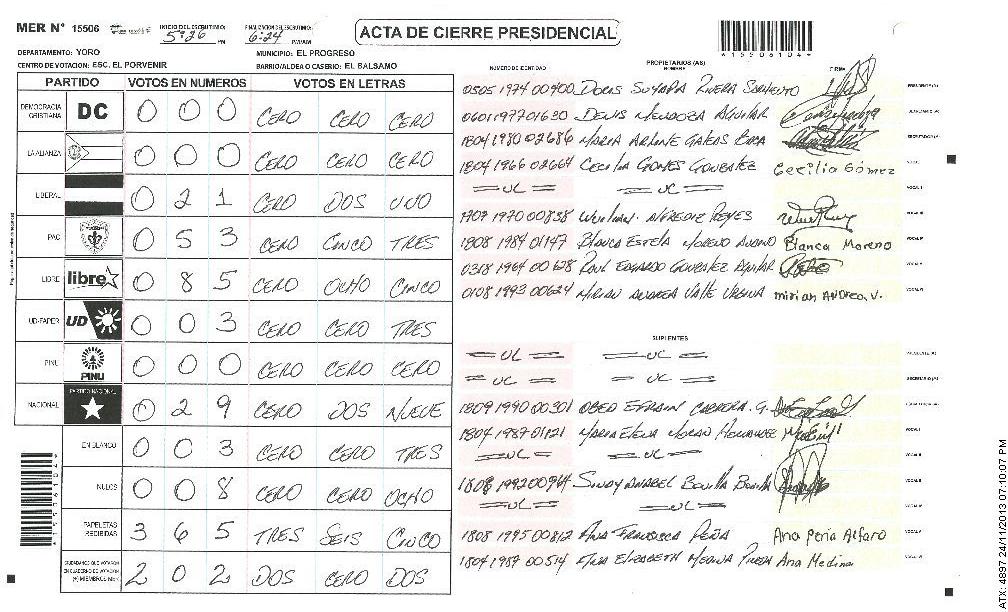 MER Nº 15506
INICIO DEL ESCRUTINIO: 5:26 PM
FINALIZACION DEL ESCRUTINIO: 6:24 PM/AM
ACTA DE CIERRE PRESIDENCIAL
4155061044
DEPARTAMENTO: YORO
MUNICIPIO: EL PROGRESO
CENTRO DE VOTACION: ESC. EL PORVENIR
BARRIO/ALDEA O CASERIO: EL BALSAMO
PARTIDO VOTOS EN NUMEROS VOTOS EN LETRAS
DEMOCRACIA CRISTIANA DC 0 0 0 CERO CERO CERO
LA ALIANZA 0 0 0 CERO CERO CERO
LIBERAL 0 2 1 CERO DOS UNO
PAC 0 5 3 CERO CINCO TRES
LIBRE libre 0 8 5 CERO OCHO CINCO
UD-FAPER UD 0 0 3 CERO CERO TRES
PINU PINU 0 0 0 CERO CERO CERO
NACIONAL PARTIDO NACIONAL 0 2 9 CERO DOS NUEVE
EN BLANCO 0 0 3 CERO CERO TRES
NULOS 0 0 8 CERO CERO OCHO
PAPELETAS RECIBIDAS 3 6 5 TRES SEIS CINCO
CIUDADANOS QUE VOTARON EN CUADERNO DE VOTACION (+) MIEMBROS MER 2 0 2 DOS CERO DOS
PROPIETARIOS (AS)
NUMERO DE IDENTIDAD NOMBRE FIRMA
0505 1974 00400 DORIS SUYAPA RIVERA SARMIENTO PRESIDENTE (A)
0601 1977 01630 DENIS MENDOZA AGUILAR SECRETARIO (A)
1804 1980 02686 MARIA ARLENE GALEAS
1804 1966 02664 CECILIA GOMES GONZALEZ Cecilia Gómez
= UL = = UL =
1707 1970 00838 REYES
1808 1984 01147 BLANCA ESTELA MORENO Blanca Moreno
0318 1964 00628 RAUL EDGARDO GONZALEZ AGUILAR
0108 1993 00624 MIRIAN ANDREA VALLE URBINA mirian ANDREA V.
SUPLENTES
= UL = = UL = PRESIDENTE (A)
= UL = = UL = SECRETARIO (A)
1809 1990 00301 OBED EFRAIN CABRERA G.
1804 1987 01121 MARIA ELENA MORAN HERNANDEZ
= UL = = UL =
1808 1992 00964 SINDY ANABEL BONILLA BONILLA
= UL = = UL =
1808 1995 00812 ANA FRANCISCA PEÑA Ana Peña Alfaro
1804 1987 00514 ANA ELIZABETH MEDINA PINEDA Ana Medina
ATX: 4897 24/11/2013 07:10:07 PM